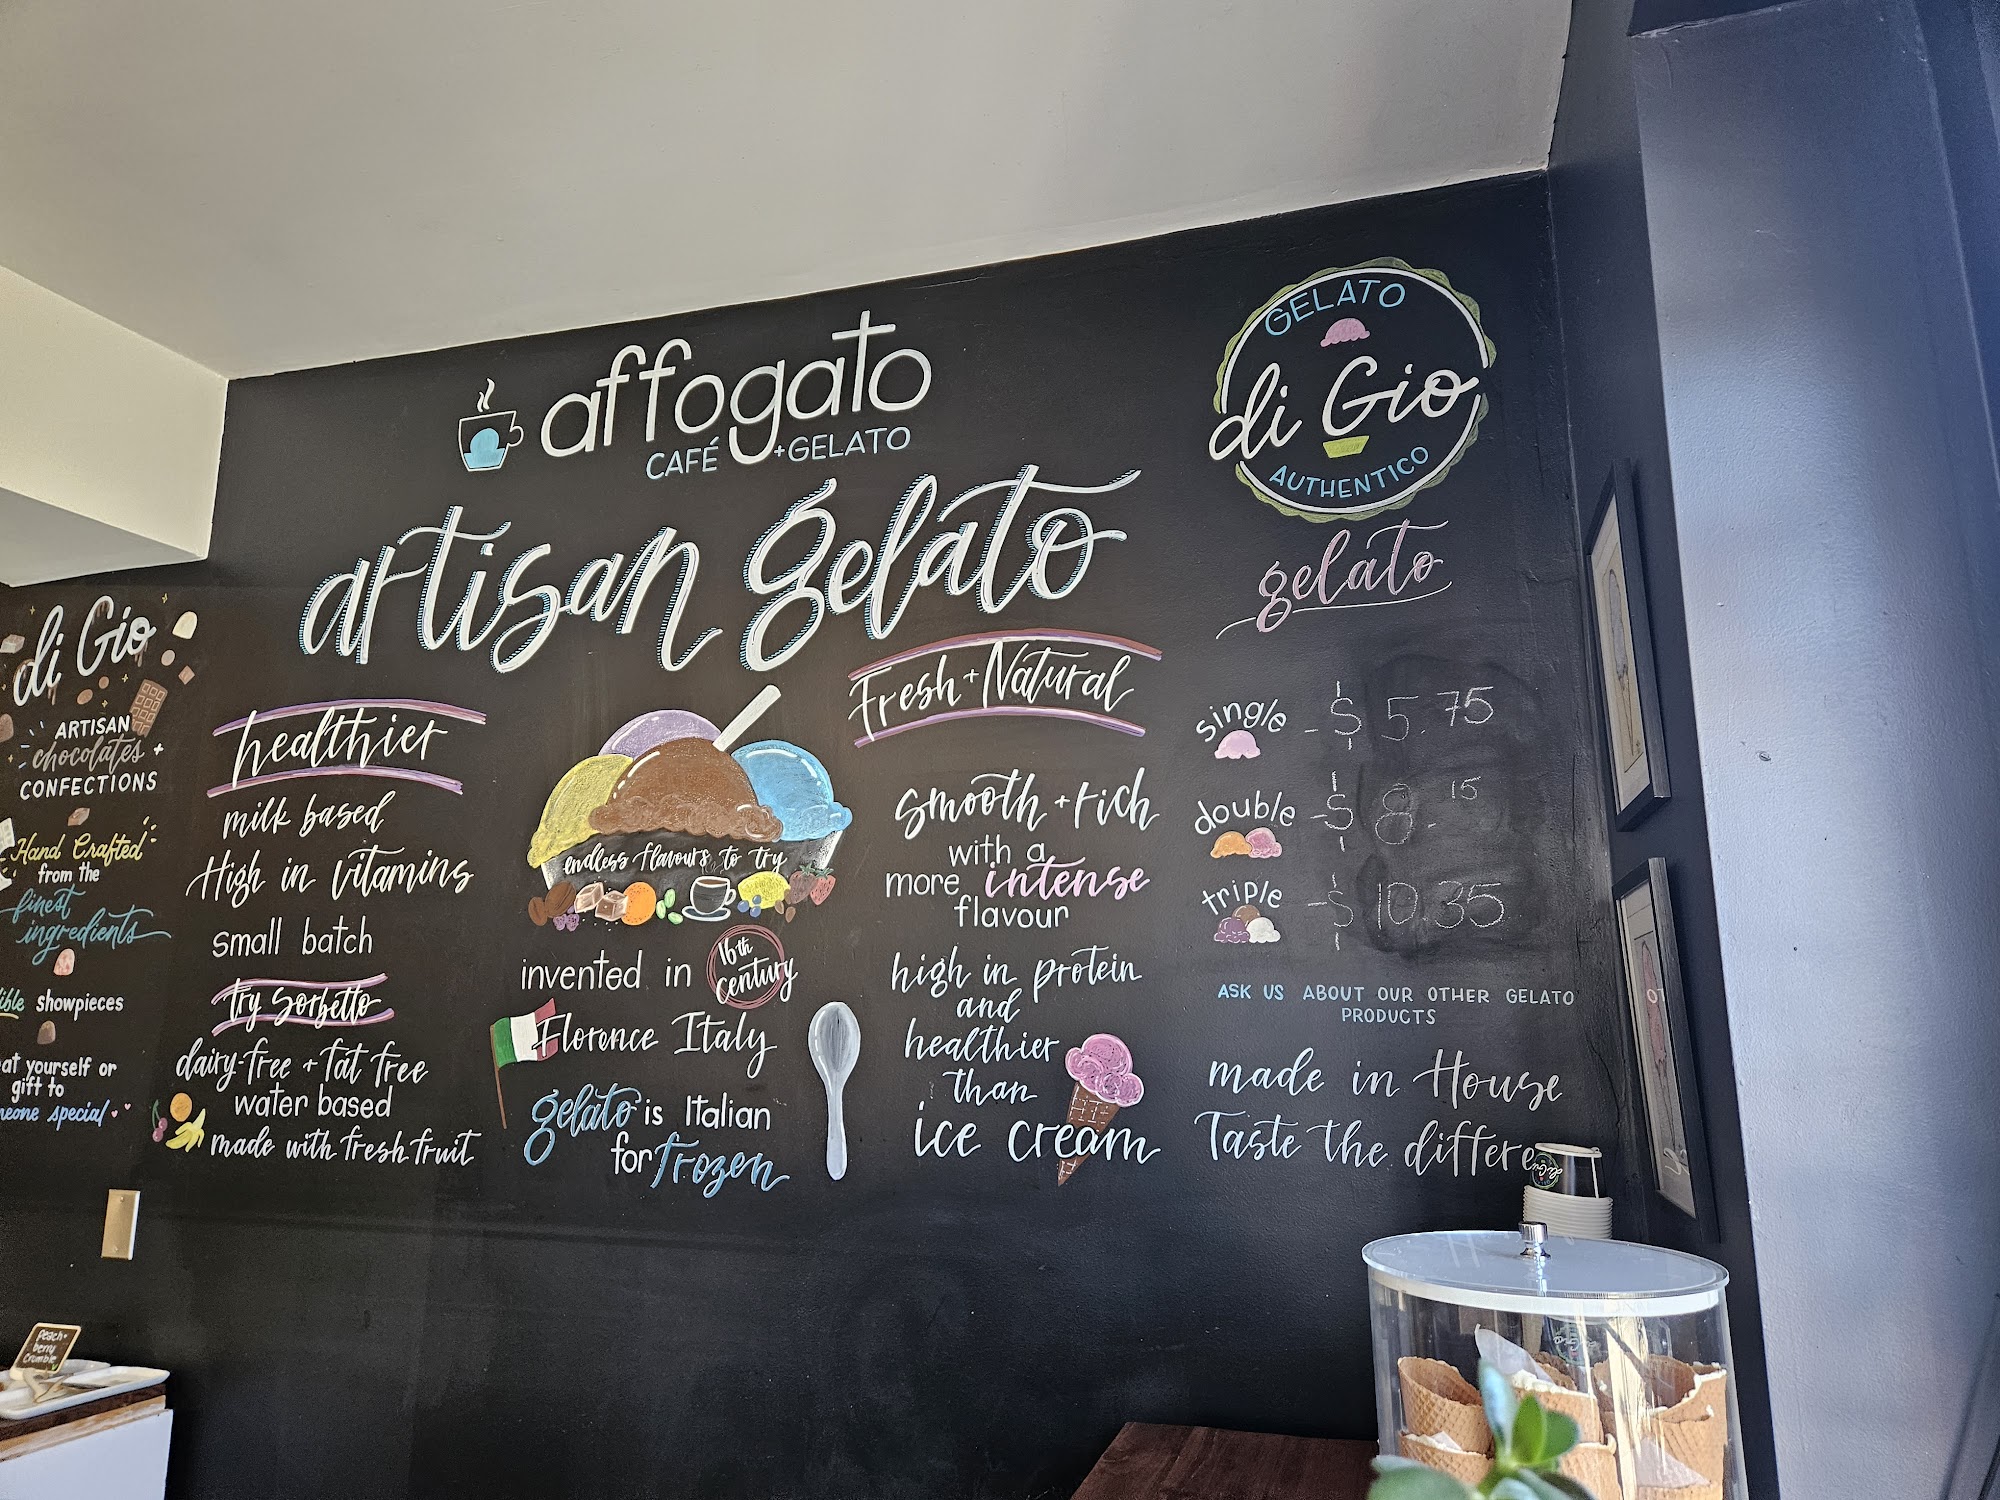 affogato
CAFÉ + GELATO
artisan gelato
GELATO
di Gio
AUTHENTICO
di Gio
ARTISAN
chocolates +
CONFECTIONS
Hand Crafted
from the
finest
ingredients
showpieces
yourself or
gift to
special
healthier
milk based
High in vitamins
small batch
try sorbetto
dairy-free + fat free
water based
made with fresh fruit
endless flavours to try
invented in 16th century
Florence Italy
gelato is Italian
for frozen
Fresh + Natural
smooth + rich
with a
more intense
flavour
high in protein
and
healthier
than
ice cream
gelato
single - $5.75
double - $8.15
triple - $10.35
ASK US ABOUT OUR OTHER GELATO
PRODUCTS
made in House
Taste the differe
peach
berry
crumble